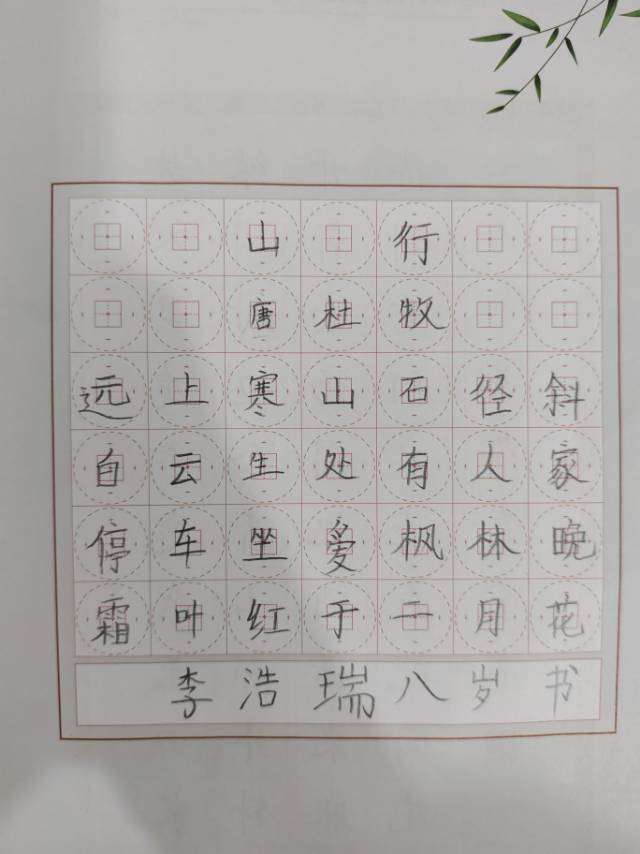 山行
唐杜牧
远上寒山石径斜
自云生处有人家
停车坐爱枫林晚
霜叶红于二月花
李浩瑞八岁书